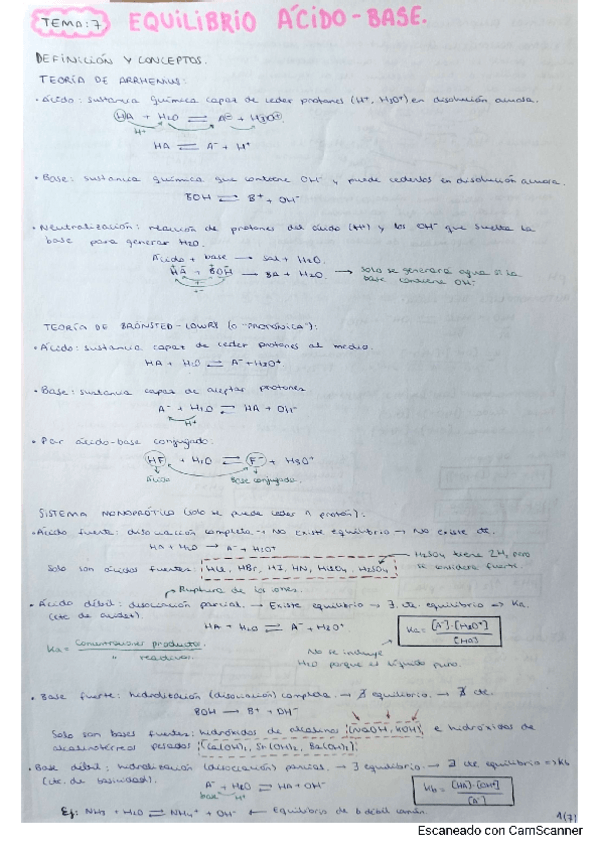 TEMA: 7 EQUILIBRIO ÁCIDO-BASE.
DEFINICIÓN Y CONCEPTOS.
TEORÍA DE ARRHENIUS:
• Ácido: sustancia química capaz de ceder protones (H⁺, H₃O⁺) en disolución acuosa.
HA + H₂O ⇌ A⁻ + H₃O⁺
H⁺
HA ⇌ A⁻ + H⁺
• Base: sustancia química que contiene OH⁻ y puede cederlos en disolución acuosa.
BOH ⇌ B⁺ + OH⁻
• Neutralización: reacción de protones del ácido (H⁺) y los OH⁻ que suelta la
base para generar H₂O.
Ácido + base → sal + H₂O.
HA + BOH → BA + H₂O. → Solo se generará agua si la
base contiene OH⁻
TEORÍA DE BRÖNSTED-LOWRY (o "PROTÓNICA"):
• Ácido: sustancia capaz de ceder protones al medio.
HA + H₂O ⇌ A⁻ + H₃O⁺
• Base: sustancia capaz de aceptar protones
A⁻ + H₂O ⇌ HA + OH⁻
H⁺
• Par ácido-base conjugado:
HF + H₂O ⇌ F⁻ + H₃O⁺
Ácido Base conjugada.
SISTEMA MONOPRÓTICO (solo se puede ceder 1 protón):
• Ácido fuerte: disociación completa → No existe equilibrio → No existe cte.
HA + H₂O → A⁻ + H₃O⁺
H₂SO₄ tiene 2H, pero
se considera fuerte.
Solo son ácidos fuertes:
HBr, HI,
H₂SO₄
Ruptura de los iones.
• Ácido débil: disociación parcial. → Existe equilibrio → ∃ cte. equilibrio => Ka
(cte de acidez).
HA + H₂O ⇌ A⁻ + H₃O⁺
Ka = [A⁻]·[H₃O⁺] / [HA]
Ka = Concentraciones productos / " reactivos.
No se incluye
H₂O porque es líquido puro.
• Base fuerte: hidrolización (disociación) completa. → ∄ equilibrio. → ∄ cte.
BOH → B⁺ + OH⁻
Solo son bases fuertes: hidróxidos de alcalinos (NaOH, KOH) e hidróxidos de
alcalinotérreos pesados (Ca(OH)₂, Sr(OH)₂, Ba(OH)₂)
• Base débil: hidrolización (disociación) parcial. → ∃ equilibrio. → ∃ cte equilibrio => Kb
(cte. de basicidad).
A⁻ + H₂O ⇌ HA + OH⁻
base H⁺
Kb = [HA]·[OH⁻] / [A⁻]
Ej: NH₃ + H₂O ⇌ NH₄⁺ + OH⁻ ← Equilibrio de b débil común.
1(7)
Escaneado con CamScanner